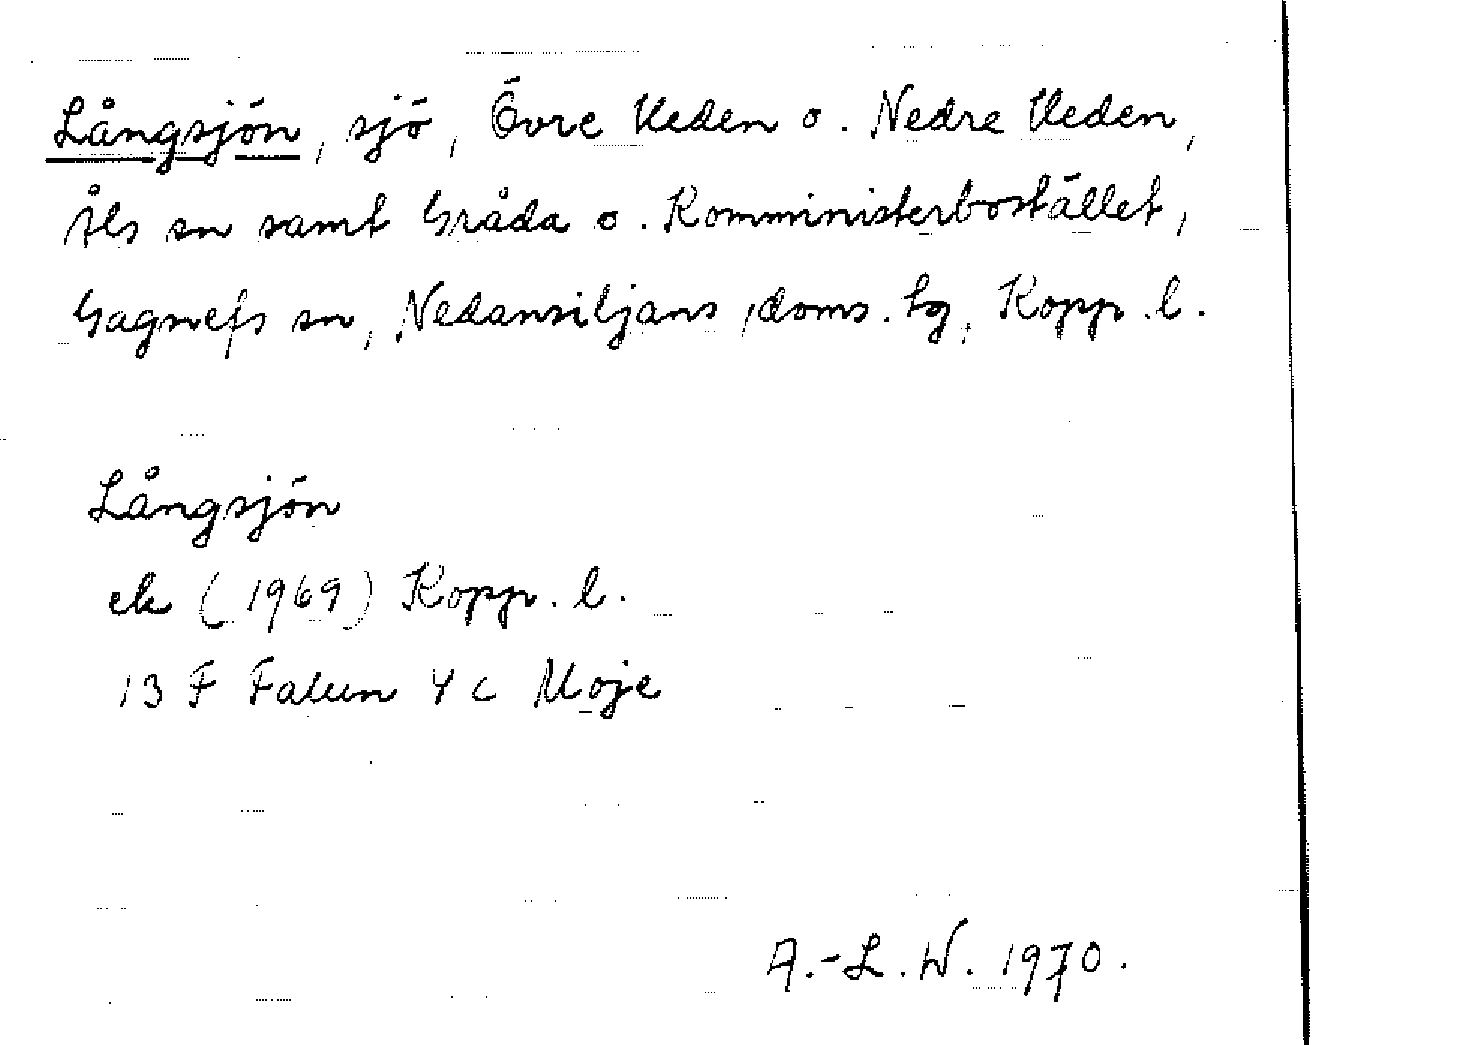 Långsjön, sjö, Övre Heden o. Nedre Heden,
Åls sn samt Gråda o. Komministerbostället,
Gagnefs sn, Nedansiljans doms. tg, Kopp. l.
Långsjön
ek (1969) Kopp. l.
13 F Falun 4 c Moje
A.-L. W. 1970.